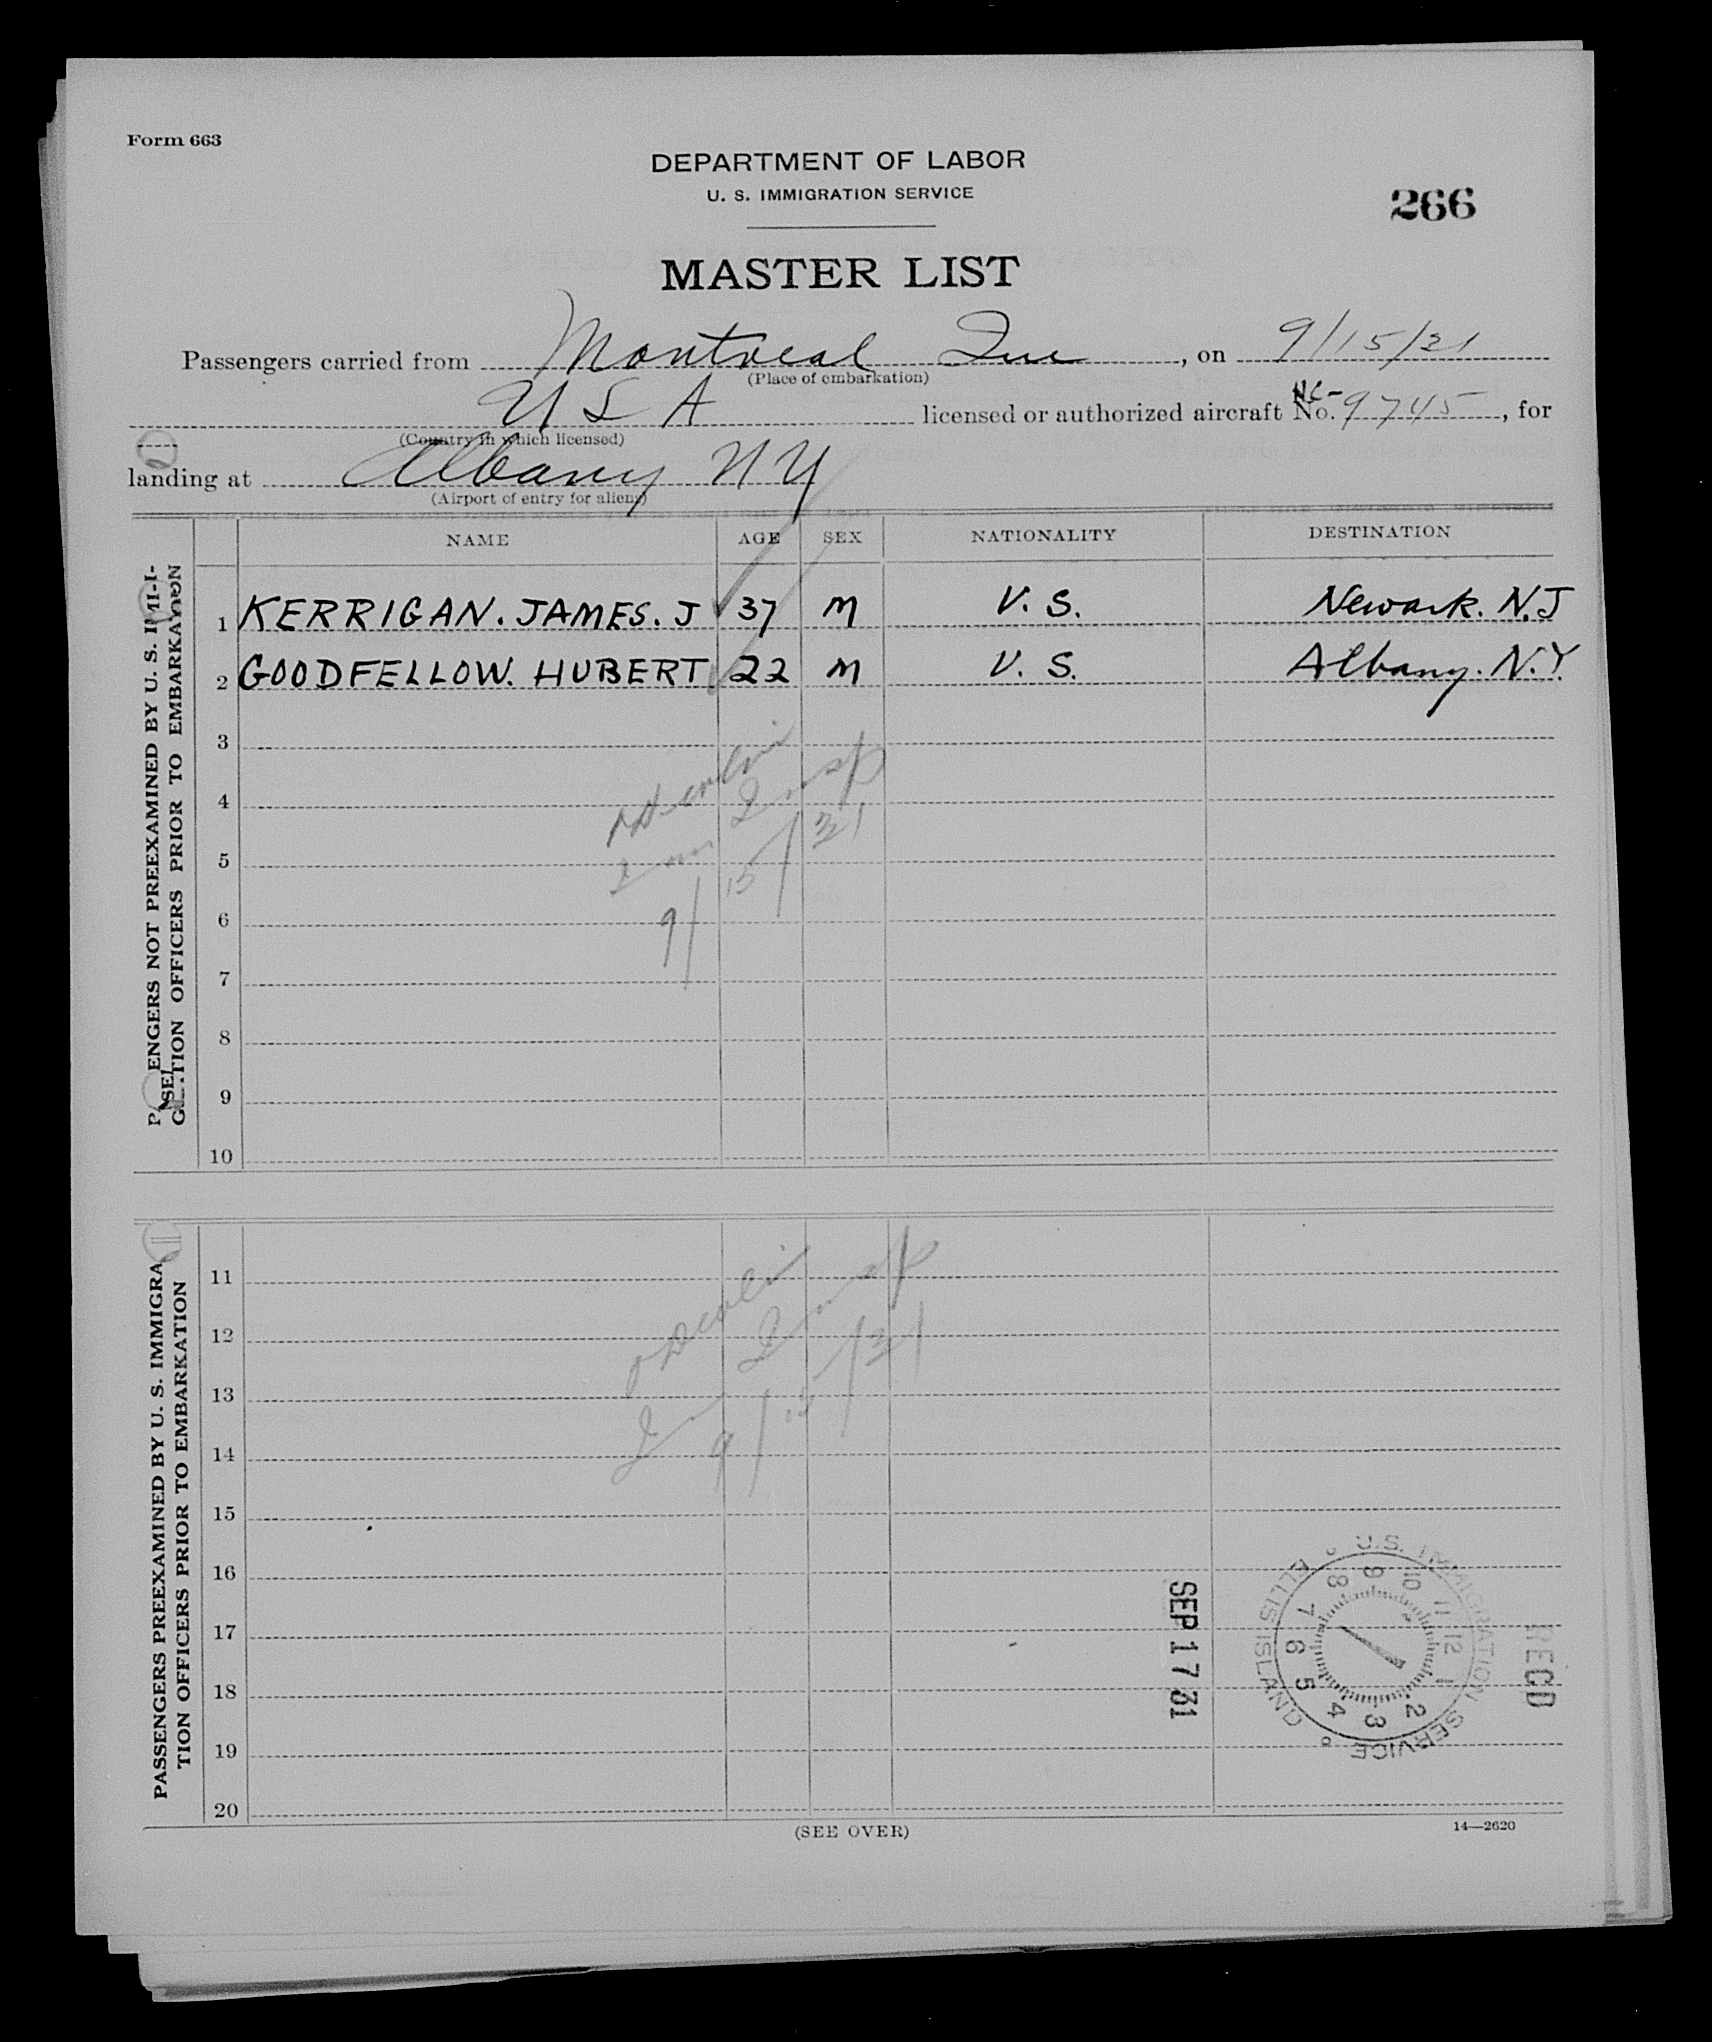 Form 663
DEPARTMENT OF LABOR
U. S. IMMIGRATION SERVICE
266
MASTER LIST
Passengers carried from Montreal Que, on 9/15/31
(Place of embarkation)
USA licensed or authorized aircraft No. NC-9745, for
(Country in which licensed)
landing at Albany NY
(Airport of entry for aliens)
NAME AGE SEX NATIONALITY DESTINATION
PASSENGERS NOT PREEXAMINED BY U. S. IMMI-
GRATION OFFICERS PRIOR TO EMBARKATION
1 KERRIGAN. JAMES. J 37 M U. S. Newark. N.J
2 GOODFELLOW. HUBERT 22 M U. S. Albany. N.Y.
3
4 Insp
5
6 9/15/31
7
8
9
10
PASSENGERS PREEXAMINED BY U. S. IMMIGRA
TION OFFICERS PRIOR TO EMBARKATION
11
12 Insp
13
14 9/15/31
15
16
17
18
19
20
SEP 17 31
U.S. IMMIGRATION SERVICE
ELLIS ISLAND
1 2 3 4 5 6 7 8 9 10 11 12
RECD
(SEE OVER)
14—2620